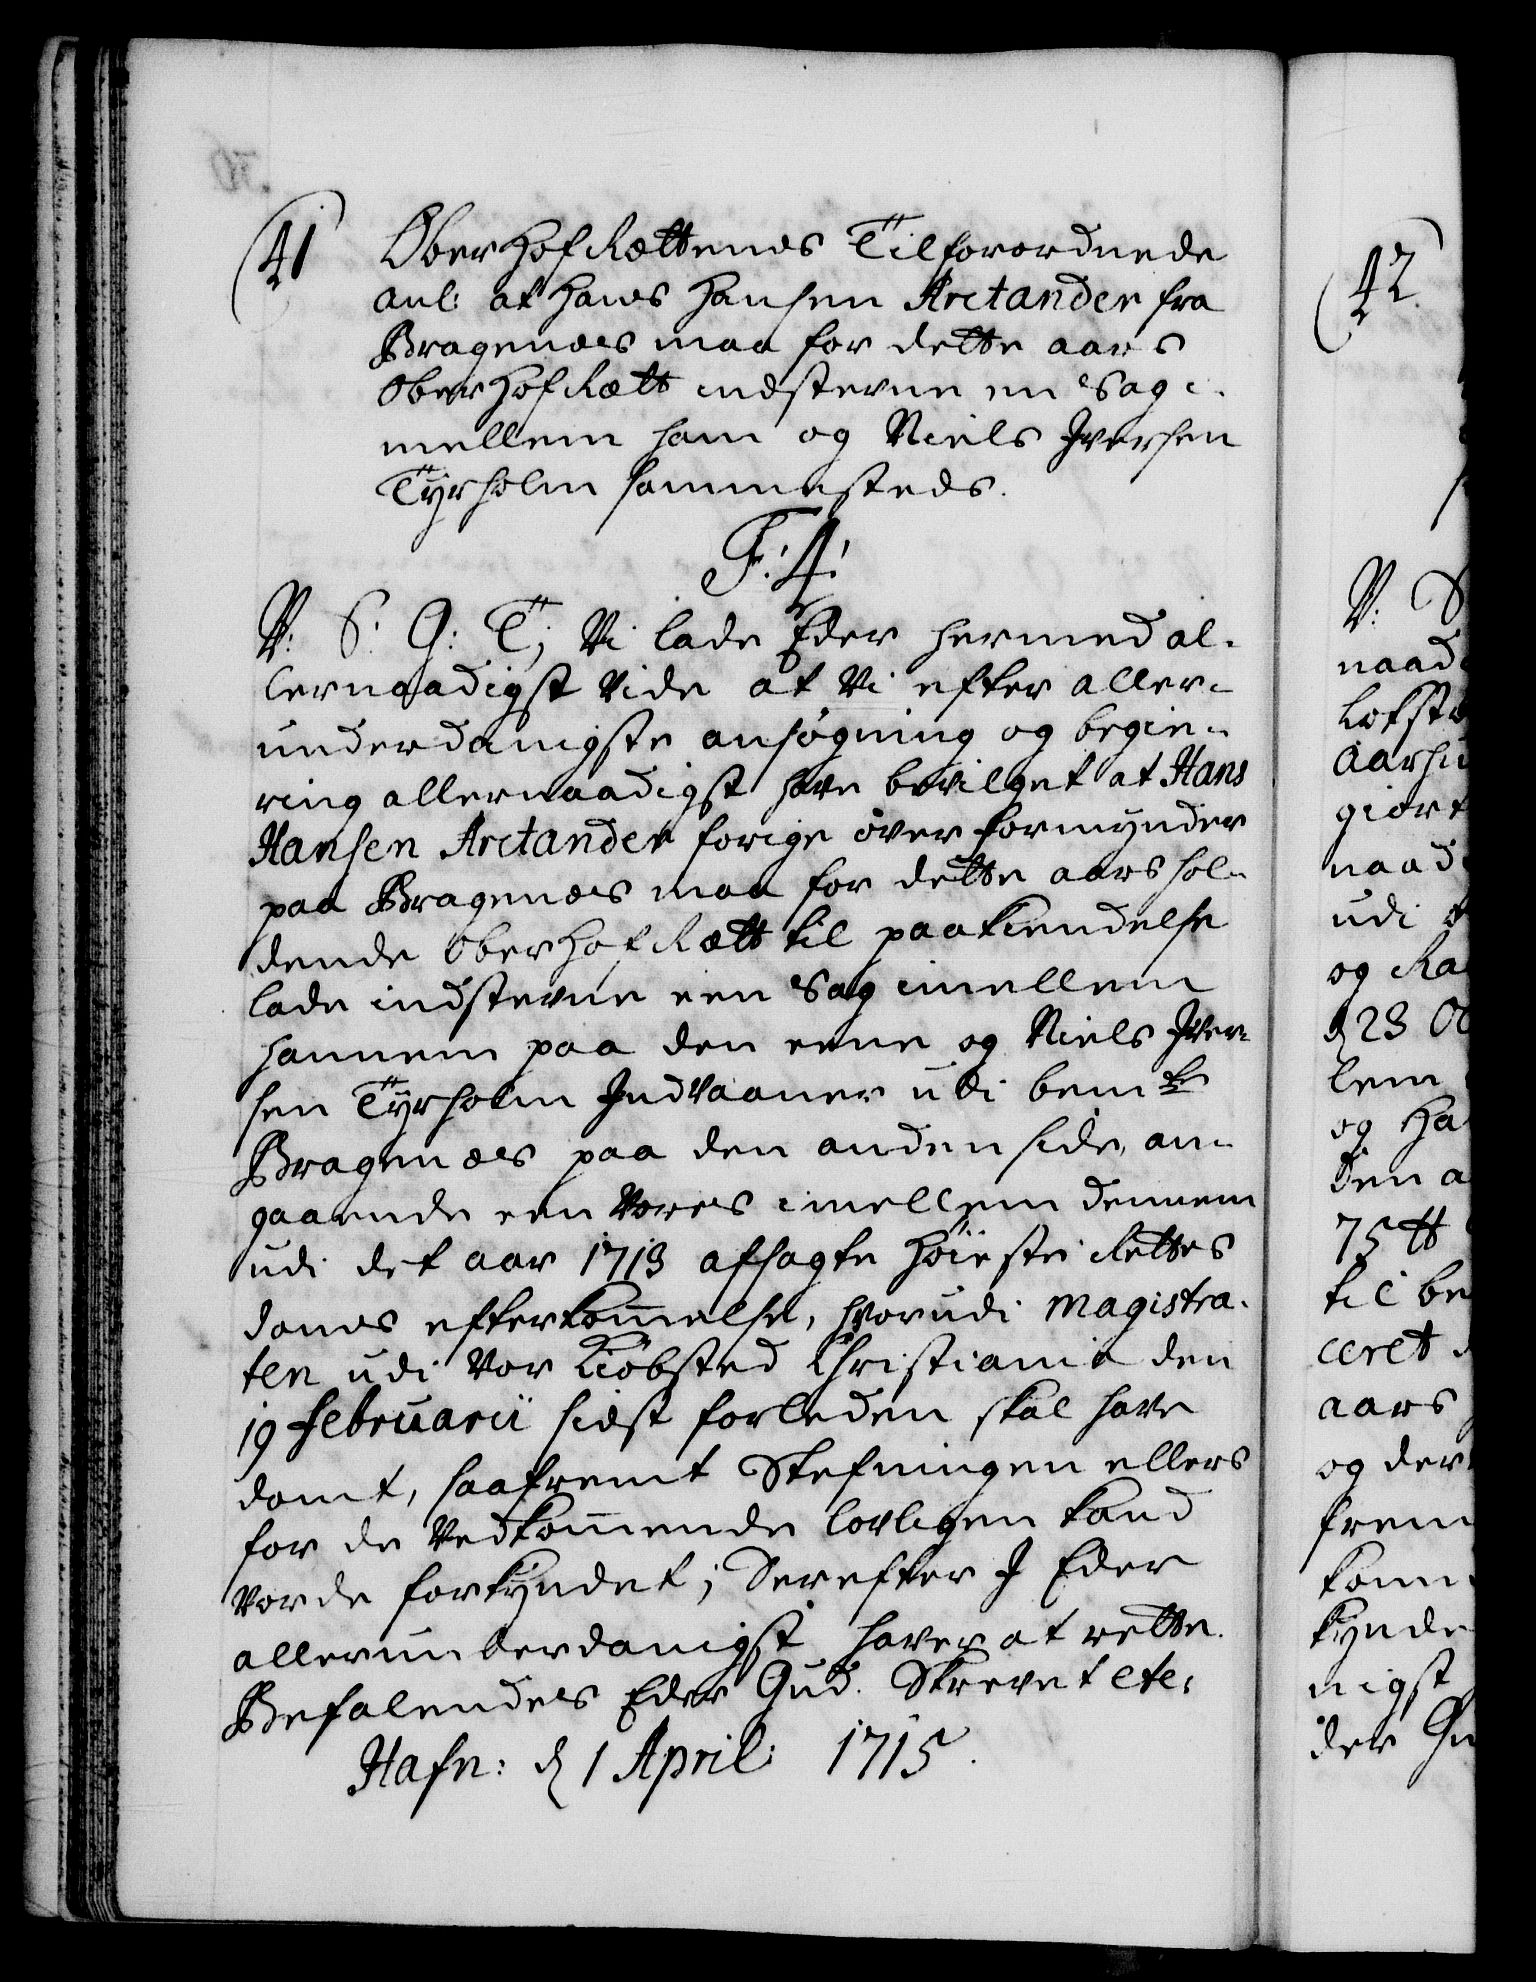 41
Ober Hof Rættens Tilforordnede
anl: at Hans Hansen Arctander fra
Bragenæs maa for dette aars
Ober Hof Rætt indstevne en Sag i-
mellem ham og Niels Iversen
Tyrholm sammesteds.
F: 4:
V: S: G: T; Vi lade Eder hermed al-
lernaadigst Vide at Vi efter aller-
underdanigste ansøgning og begie-
ring allernaadigst have bevilget at Hans
Hansen Arctander forige over formynder
paa Bragenæs maa for dette aars hol-
dende Ober Hof Rætt til paakiendelse
lade indstevne een Sag imellem
hannem paa den eene og Niels Iver-
sen Tyrholm Indvaaner udi bem.te
Bragenæs paa den anden side, an-
gaaende een Vores imellem dennem
udi det aar 1713 afsagte Høieste Rettes
doms efterkommelse, hvorudi Magistra-
ten udi Vor Kiøbsted Christiania den
19 Februarii sidst forleden skal have
domt, saafremt Stefningen ellers
for de Vedkommende lovligen kand
vorde forkyndet; Derefter I Eder
allerunderdanigst haver at rette.
Befalendes Eder Gud. Skrevet etc:
Hafn: d 1 April: 1715.
42.
V: S
naad
Lofst
Aarhu
giort
naad
udi
og Ra
d 23 Oc
lem
og Ha
den a
75 tt
til be
ceret
aars
og der
frem
komm
kynde
nigst
der Gu